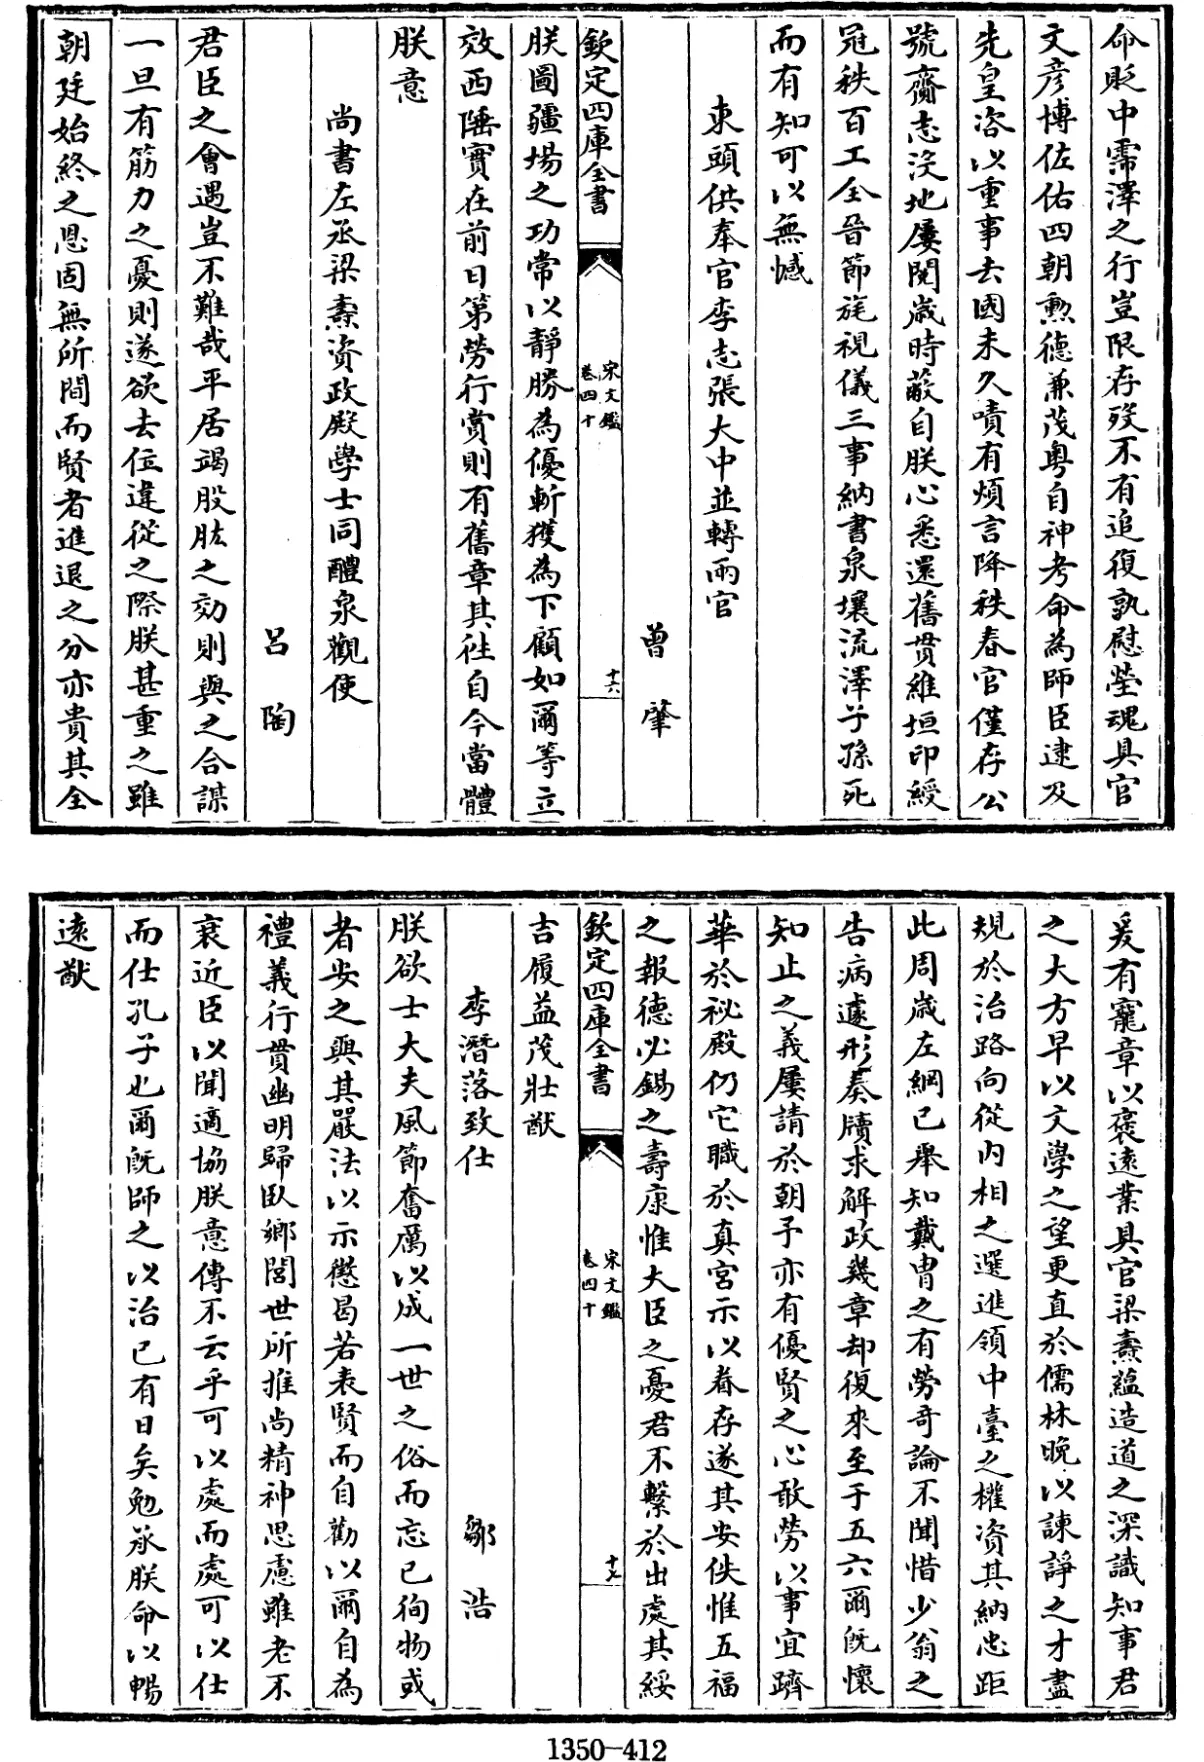 命貶中需澤之行豈限存歿不有追復孰慰塋魂具官
文彥博佐佑四朝勲德兼茂粤自神考命為師臣逮及
先皇咨以重事去國未久嘖有煩言降秩春官僅存公
號齎志沒地屢閱歲時蔽自朕心悉還舊貫維垣印綬
冠秩百工全晉節旄視儀三事納書泉壤流澤子孫死
而有知可以無憾
東頭供奉官李志張大中並轉兩官
曾肇
欽定四庫全書
宋文鑑
卷四十
十六
朕圖疆場之功常以靜勝為優斬獲為下顧如爾等立
效西陲實在前日第勞行賞則有舊章其往自今當體
朕意
尚書左丞梁燾資政殿學士同醴泉觀使
呂陶
君臣之會遇豈不難哉平居竭股肱之効則與之合謀
一旦有筋力之憂則遂欲去位違從之際朕甚重之雖
朝廷始終之恩固無所間而賢者進退之分亦貴其全
爰有寵章以褒遠業具官梁燾蘊造道之深識知事君
之大方早以文學之望更直於儒林晚以諫諍之才盡
規於治路向從内相之選進領中臺之權資其納忠距
此周歲左綱已舉知戴胄之有勞奇論不聞惜少翁之
告病遽形奏牘求解政幾章却復來至于五六爾既懷
知止之義屢請於朝予亦有優賢之心敢勞以事宜躋
華於祕殿仍它職於真宮示以眷存遂其安佚惟五福
之報德必錫之壽康惟大臣之憂君不繫於出處其綏
欽定四庫全書
宋文鑑
卷四十
十七
吉履益茂壯猷
李潛落致仕
鄒浩
朕欲士大夫風節奮厲以成一世之俗而忘已徇物或
者安之與其嚴法以示懲曷若表賢而自勸以爾自為
禮義行貫幽明歸臥鄉閭世所推尚精神思慮雖老不
衰近臣以聞適協朕意傳不云乎可以處而處可以仕
而仕孔子也爾既師之以治已有日矣勉承朕命以暢
遠猷
1350-412